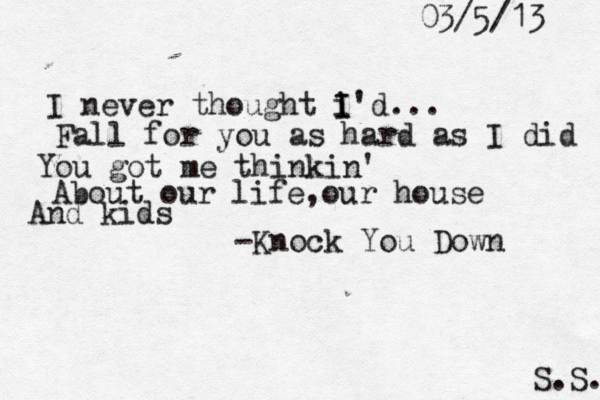 03/5/13
I never thought I'd...
Fall for you as hard as I did
You got me thinkin'
About our life,our house
And kids
-Knock You Down
S.S.